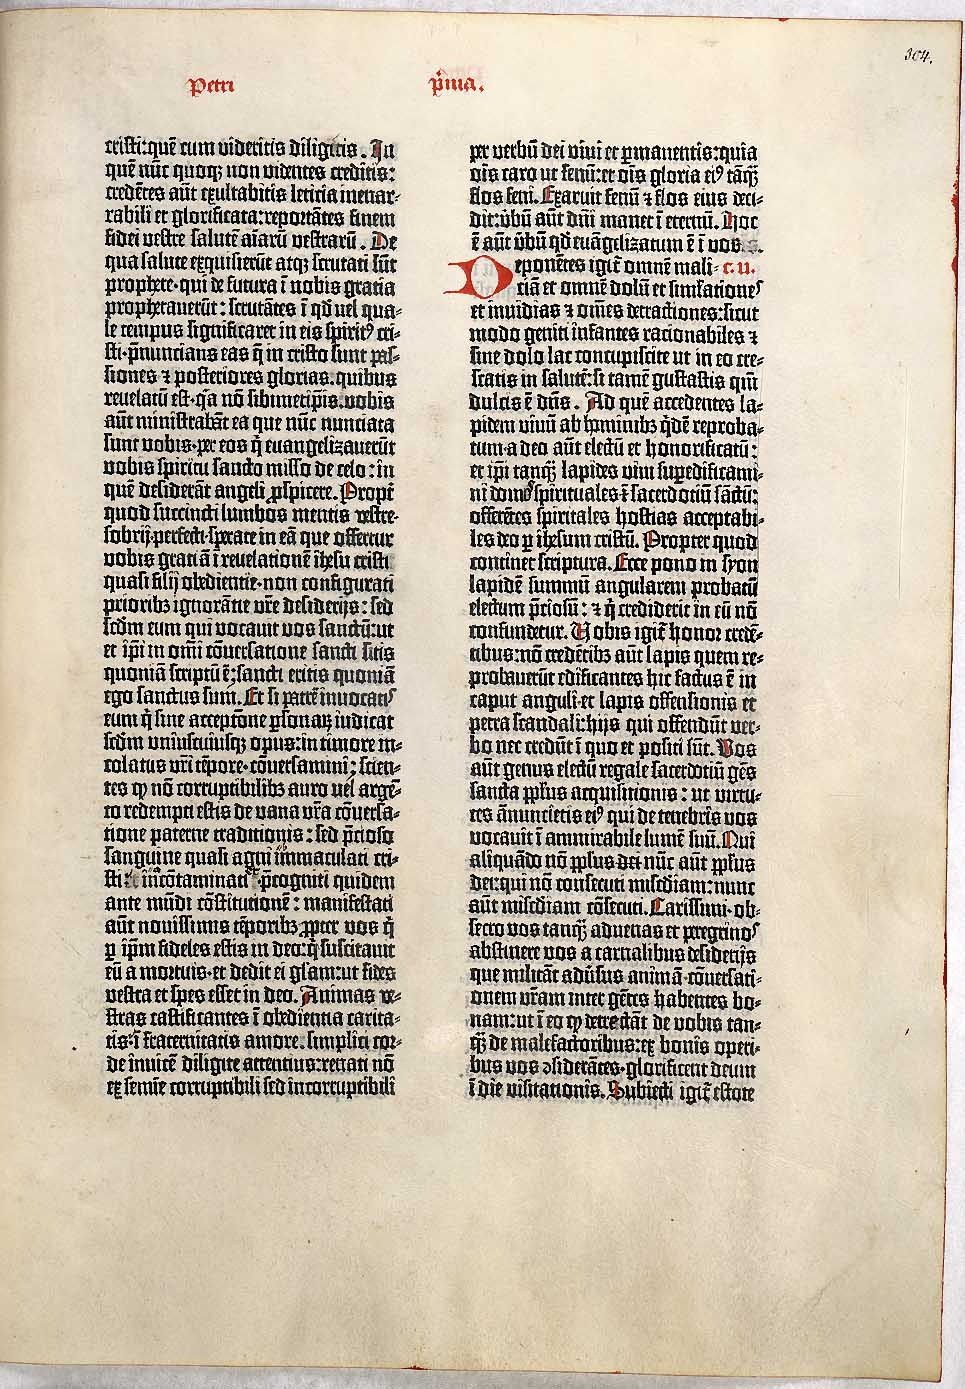 304.
Petri
p̄ma.
cristi:quē cum videritis diligitis. In
quē nūc quoqꝫ non videntes creditis:
credētes aūt exultabitis leticia inenar-
rabili et glorificata:reportātes finem
fidei vestre salutē aīarū vestrarū. De
qua salute exquisierūt atqꝫ scrutati sūt
prophete·qui de futura ī vobis gratia
prophetauerūt: scrutātes ī qd̄ vel qua-
le tempus significaret in eis spiritꝰ cri-
sti·p̄nuncians eas q̄ in cristo sunt pas-
siones ⁊ posteriores glorias.quibus
reuelatū est·qͣa nō sibimetip̄is.vobis
aūt ministrabāt ea que nūc nunciata
sunt vobis·per eos q̄ euangelizauerūt
vobis spiritu sancto misso de celo: in
quē desiderāt angeli ꝓspicere. Propt̄
quod succincti lumbos mentis vestre·
sobrij·perfecti·sperate in eā que offertur
vobis gratiā ī reuelationē ihesu cristi
quasi filij obedientie·non configurati
prioribꝫ ignorātie vr̄e desiderijs: sed
scd̄m eum qui vocauit vos sanctū:ut
et ip̄i in om̄i cōuersatione sancti sitis
quoniā scriptū ē; sancti eritis quoniā
ego sanctus sum. Et si patrē inuocatis
eum q̄ sine accepto̅ne ꝑsonaꝝ iudicat
scd̄m vniuscuiusqꝫ opus: in timore in-
colatus vr̄i tēpore·cōuersamini; scien-
tes ꝙ nō corruptibilibꝫ auro vel argē-
to redempti estis de vana vr̄a cōuersa-
tione paterne traditionis: sed p̄cioso
sanguine quasi agni īmmaculati cri-
sti: incōtaminati p̄cogniti quidem
ante mūdi cōstitutionē: manifestati
aūt nouissimis tēporibꝫ ꝓpter vos q̄
ꝑ ip̄m fideles estis in deo:q̄ suscitauit
eū a mortuis·et dedit ei gl̄am:ut fides
vestra et spes esset in deo. Animas ve-
stras castificantes ī obedientia carita-
tis:ī fraternitatis amore. simplici cor-
de īnuicē diligite attentius:renati nō
ex semīe corruptibili sed incorruptibili
per verbū dei viui et ꝑmanentis:quia
oīs caro ut fenū:et oīs gloria eiꝰ tāqꝫ
flos feni. Exaruit fenū ⁊ flos eius deci-
dit:v̄bū aūt dn̄i manet ī eternū. Hoc
ē aūt v̄bū qd̄ euāgelizatum ē ī vos.
Deponētes igit̄ omnē mali- c. ii.
ciā et omnē dolū et simlationes
et inuidias ⁊ om̄es detractiones:sicut
modo geniti infantes racionabiles ⁊
sine dolo lac concupiscite ut in eo cre-
scatis in salutē:si tamē gustastis qm̄
dulcis ē dn̄s. Ad quē accedentes la-
pidem viuū ab hominibꝫ q̄dē reproba-
tum·a deo aūt electū et honorificatū:
et ip̄i tanqꝫ lapides viui suꝑedificami-
ni domꝰ spirituales ī sacerdotiū sāctū:
offerētes spiritales hostias acceptabi-
les deo ꝑ ihesum cristū. Propter quod
continet scriptura. Ecce pono in syon
lapidē summū angularem probatū
electum p̄ciosū: ⁊ q̄ crediderit in eū nō
confundetur. Vobis igit̄ honor credē-
tibus:nō credētibꝫ aūt lapis quem re-
probauerūt edificantes hic factus ē in
caput anguli·et lapis offensionis et
petra scandali:hijs qui offendūt ver-
bo nec credūt ī quo et positi sūt. Vos
aūt genus electū regale sacerdotiū gēs
sancta pp̄lus acquisitionis: ut virtu-
tes ānuncietis eiꝰ qui de tenebris vos
vocauit ī ammirabile lumē suū. Qui
aliquādo nō pp̄lus dei nūc aūt pp̄lus
dei:qui nō consecuti mis̄cdiam:nunc
aūt mis̄cdiam cōsecuti. Carissimi·ob-
secro vos tanqꝫ aduenas et peregrinos
abstinere vos a carnalibus desiderijs
que militāt adūsus animā·cōuersati-
onem vr̄am inter gētes habentes bo-
nam:ut ī eo ꝙ detrectāt de vobis tan-
qꝫ de malefactoribus:ex bonis operi-
bus vos ↄsiderātes·glorificent deum
ī die visitationis. Subiecti igit̄ estote